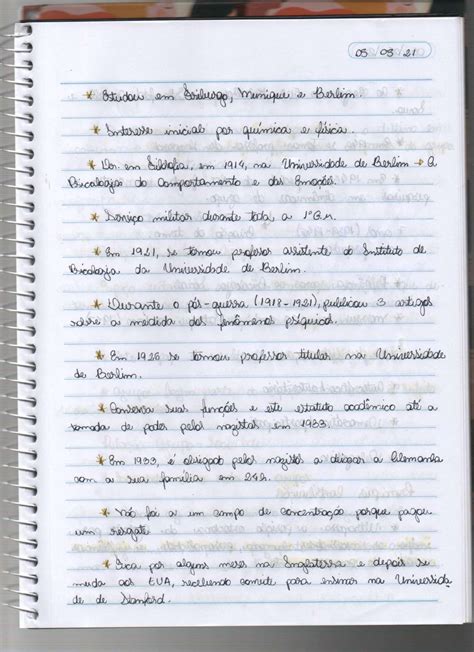 03/03/21
* Estudou em Friburgo, Munique e Berlim.
* Interesse inicial por química e física.
* Dr. em Filosofia, em 1914, na Universidade de Berlim → A
Psicologia do Comportamento e das Emoções.
* Serviço militar durante toda, a 1ª G.M.
* Em 1921, se tornou professor assistente do Instituto de
Psicologia da Universidade de Berlim.
* Durante o pós-guerra (1918-1921), publicou 3 artigos
sobre a medida dos fenômenos psíquicos.
* Em 1926 se tornou professor titular na Universidade
de Berlim.
* Conserva suas funções e este estatuto acadêmico até a
tomada de poder pelos nazistas em 1933.
* Em 1933, é obrigado pelos nazistas a deixar a Alemanha
com a sua família em 24h.
* Não foi a um campo de concentração porque pagou
um resgate.
* Fica por alguns meses na Inglaterra e depois se
muda aos EUA, recebendo convite para ensinar na Universida
de de Stanford.